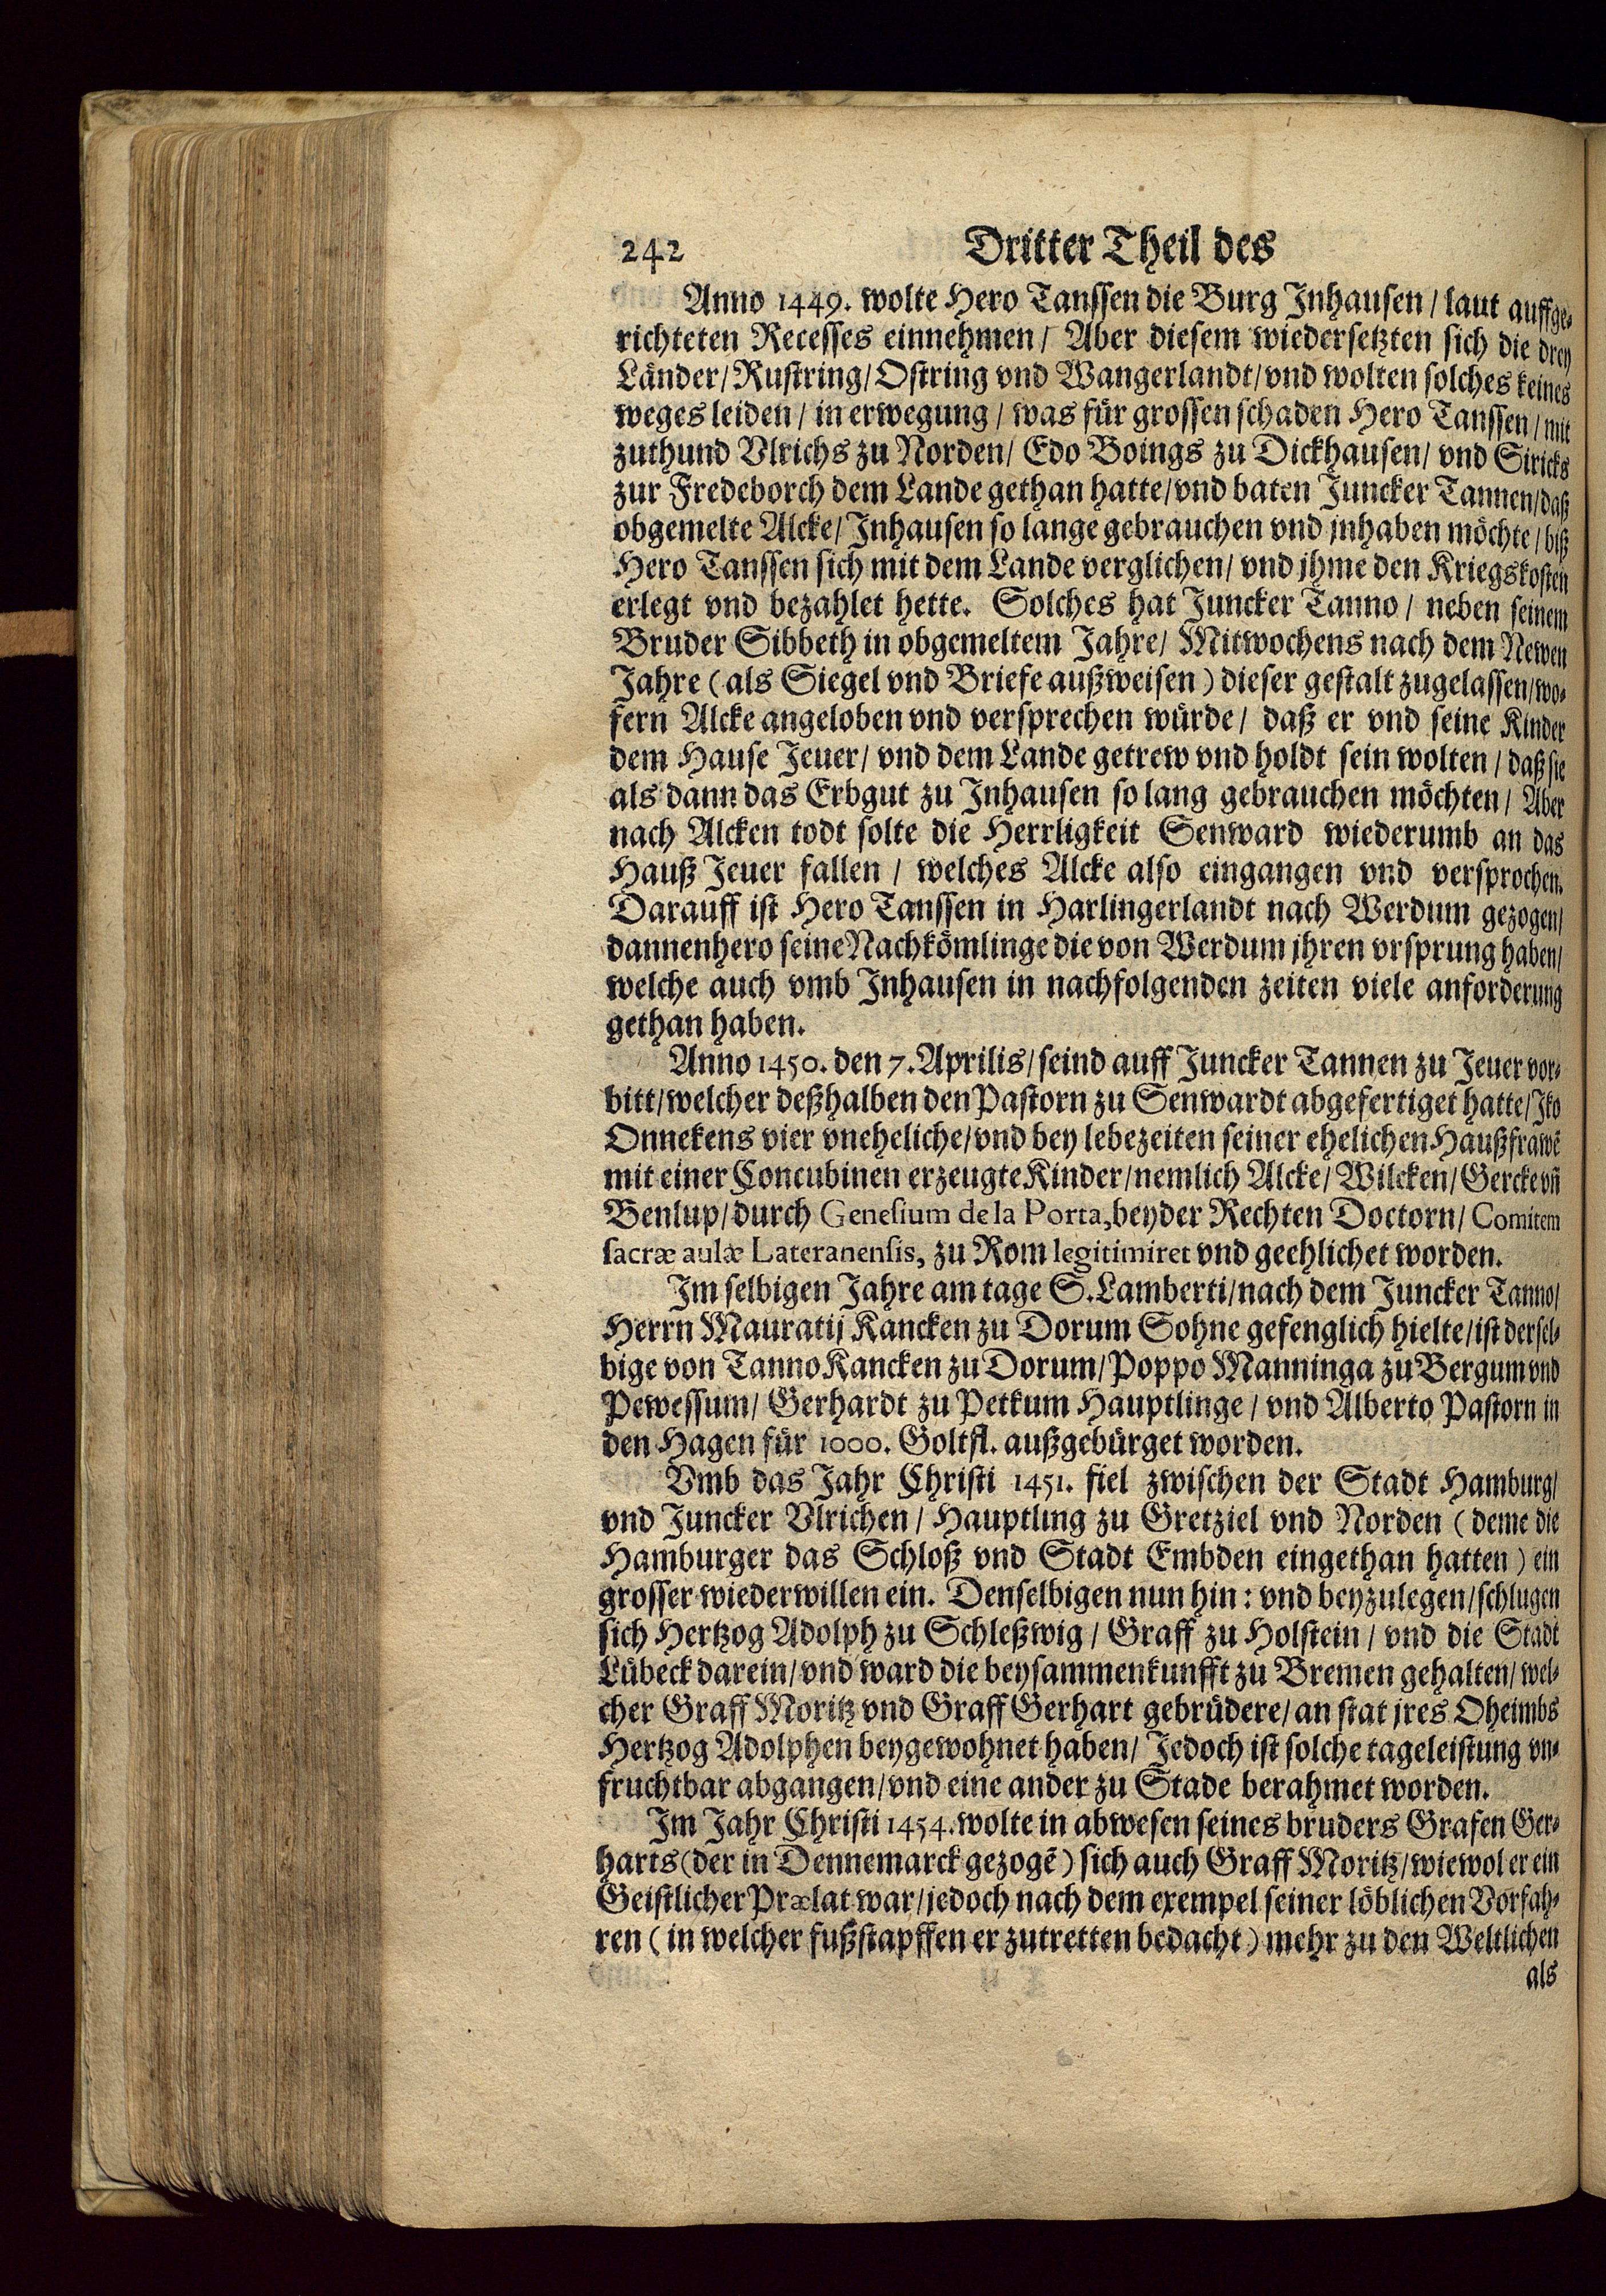 242 Dritter Theil des
Anno 1449. wolte Hero Tanssen die Burg Inhausen / laut auffge-
richteten Recesses einnehmen / Aber diesem wiedersetzten sich die drey
Länder / Rustring / Ostring vnd Wangerlandt / vnd wolten solches keines
weges leiden / in erwegung / was für grossen schaden Hero Tanssen / mit
zuthund Vlrichs zu Norden / Edo Boings zu Dickhausen / vnd Siricks
zur Fredeborch dem Lande gethan hatte / vnd baten Juncker Tannen / daß
obgemelte Alcke / Inhausen so lange gebrauchen vnd jnhaben möchte / biß
Hero Tanssen sich mit dem Lande verglichen / vnd jhme den Kriegskosten
erlegt vnd bezahlet hette. Solches hat Juncker Tanno / neben seinem
Bruder Sibbeth in obgemeltem Jahre / Mitwochens nach dem Newen
Jahre (als Siegel vnd Briefe außweisen) dieser gestalt zugelassen / wo-
fern Alcke angeloben vnd versprechen würde / daß er vnd seine Kinder
dem Hause Jeuer / vnd dem Lande getrew vnd holdt sein wolten / daß sie
als dann das Erbgut zu Inhausen so lang gebrauchen möchten / Aber
nach Alcken todt solte die Herrligkeit Senward wiederumb an das
Hauß Jeuer fallen / welches Alcke also eingangen vnd versprochen.
Darauff ist Hero Tanssen in Harlingerlandt nach Werdum gezogen /
dannenhero seine Nachkömlinge die von Werdum jhren vrsprung haben /
welche auch vmb Inhausen in nachfolgenden zeiten viele anforderung
gethan haben.
Anno 1450. den 7. Aprilis / seind auff Juncker Tannen zu Jeuer vor-
bitt / welcher deßhalben den Pastorn zu Senwardt abgefertiget hatte / Iko
Onnekens vier vneheliche / vnd bey lebezeiten seiner ehelichen Haußfrawē
mit einer Concubinen erzeugte Kinder / nemlich Alcke / Wilcken / Gercke vñ
Benlup / durch Genesium de la Porta, beyder Rechten Doctorn / Comitem
sacræ aulæ Lateranensis, zu Rom legitimiret vnd geehlichet worden.
Im selbigen Jahre am tage S. Lamberti / nach dem Juncker Tanno /
Herrn Mauratij Kancken zu Dorum Sohne gefenglich hielte / ist dersel-
bige von Tanno Kancken zu Dorum / Poppo Manninga zu Bergum vnd
Pewessum / Gerhardt zu Petkum Hauptlinge / vnd Alberto Pastorn in
den Hagen für 1000. Goltfl. außgebürget worden.
Vmb das Jahr Christi 1451. fiel zwischen der Stadt Hamburg /
vnd Juncker Vlrichen / Hauptling zu Gretziel vnd Norden (deme die
Hamburger das Schloß vnd Stadt Embden eingethan hatten) ein
grosser wiederwillen ein. Denselbigen nun hin: vnd beyzulegen / schlugen
sich Hertzog Adolph zu Schleßwig / Graff zu Holstein / vnd die Stadt
Lübeck darein / vnd ward die beysammenkunfft zu Bremen gehalten / wel-
cher Graff Moritz vnd Graff Gerhart gebrüdere / an stat jres Oheimbs
Hertzog Adolphen beygewohnet haben / Jedoch ist solche tageleistung vn-
fruchtbar abgangen / vnd eine ander zu Stade berahmet worden.
Im Jahr Christi 1454. wolte in abwesen seines bruders Grafen Ger-
harts (der in Dennemarck gezogē) sich auch Graff Moritz / wiewol er ein
Geistlicher Prælat war / jedoch nach dem exempel seiner löblichen Vorfah-
ren (in welcher fußstapffen er zutretten bedacht) mehr zu den Weltlichen
als